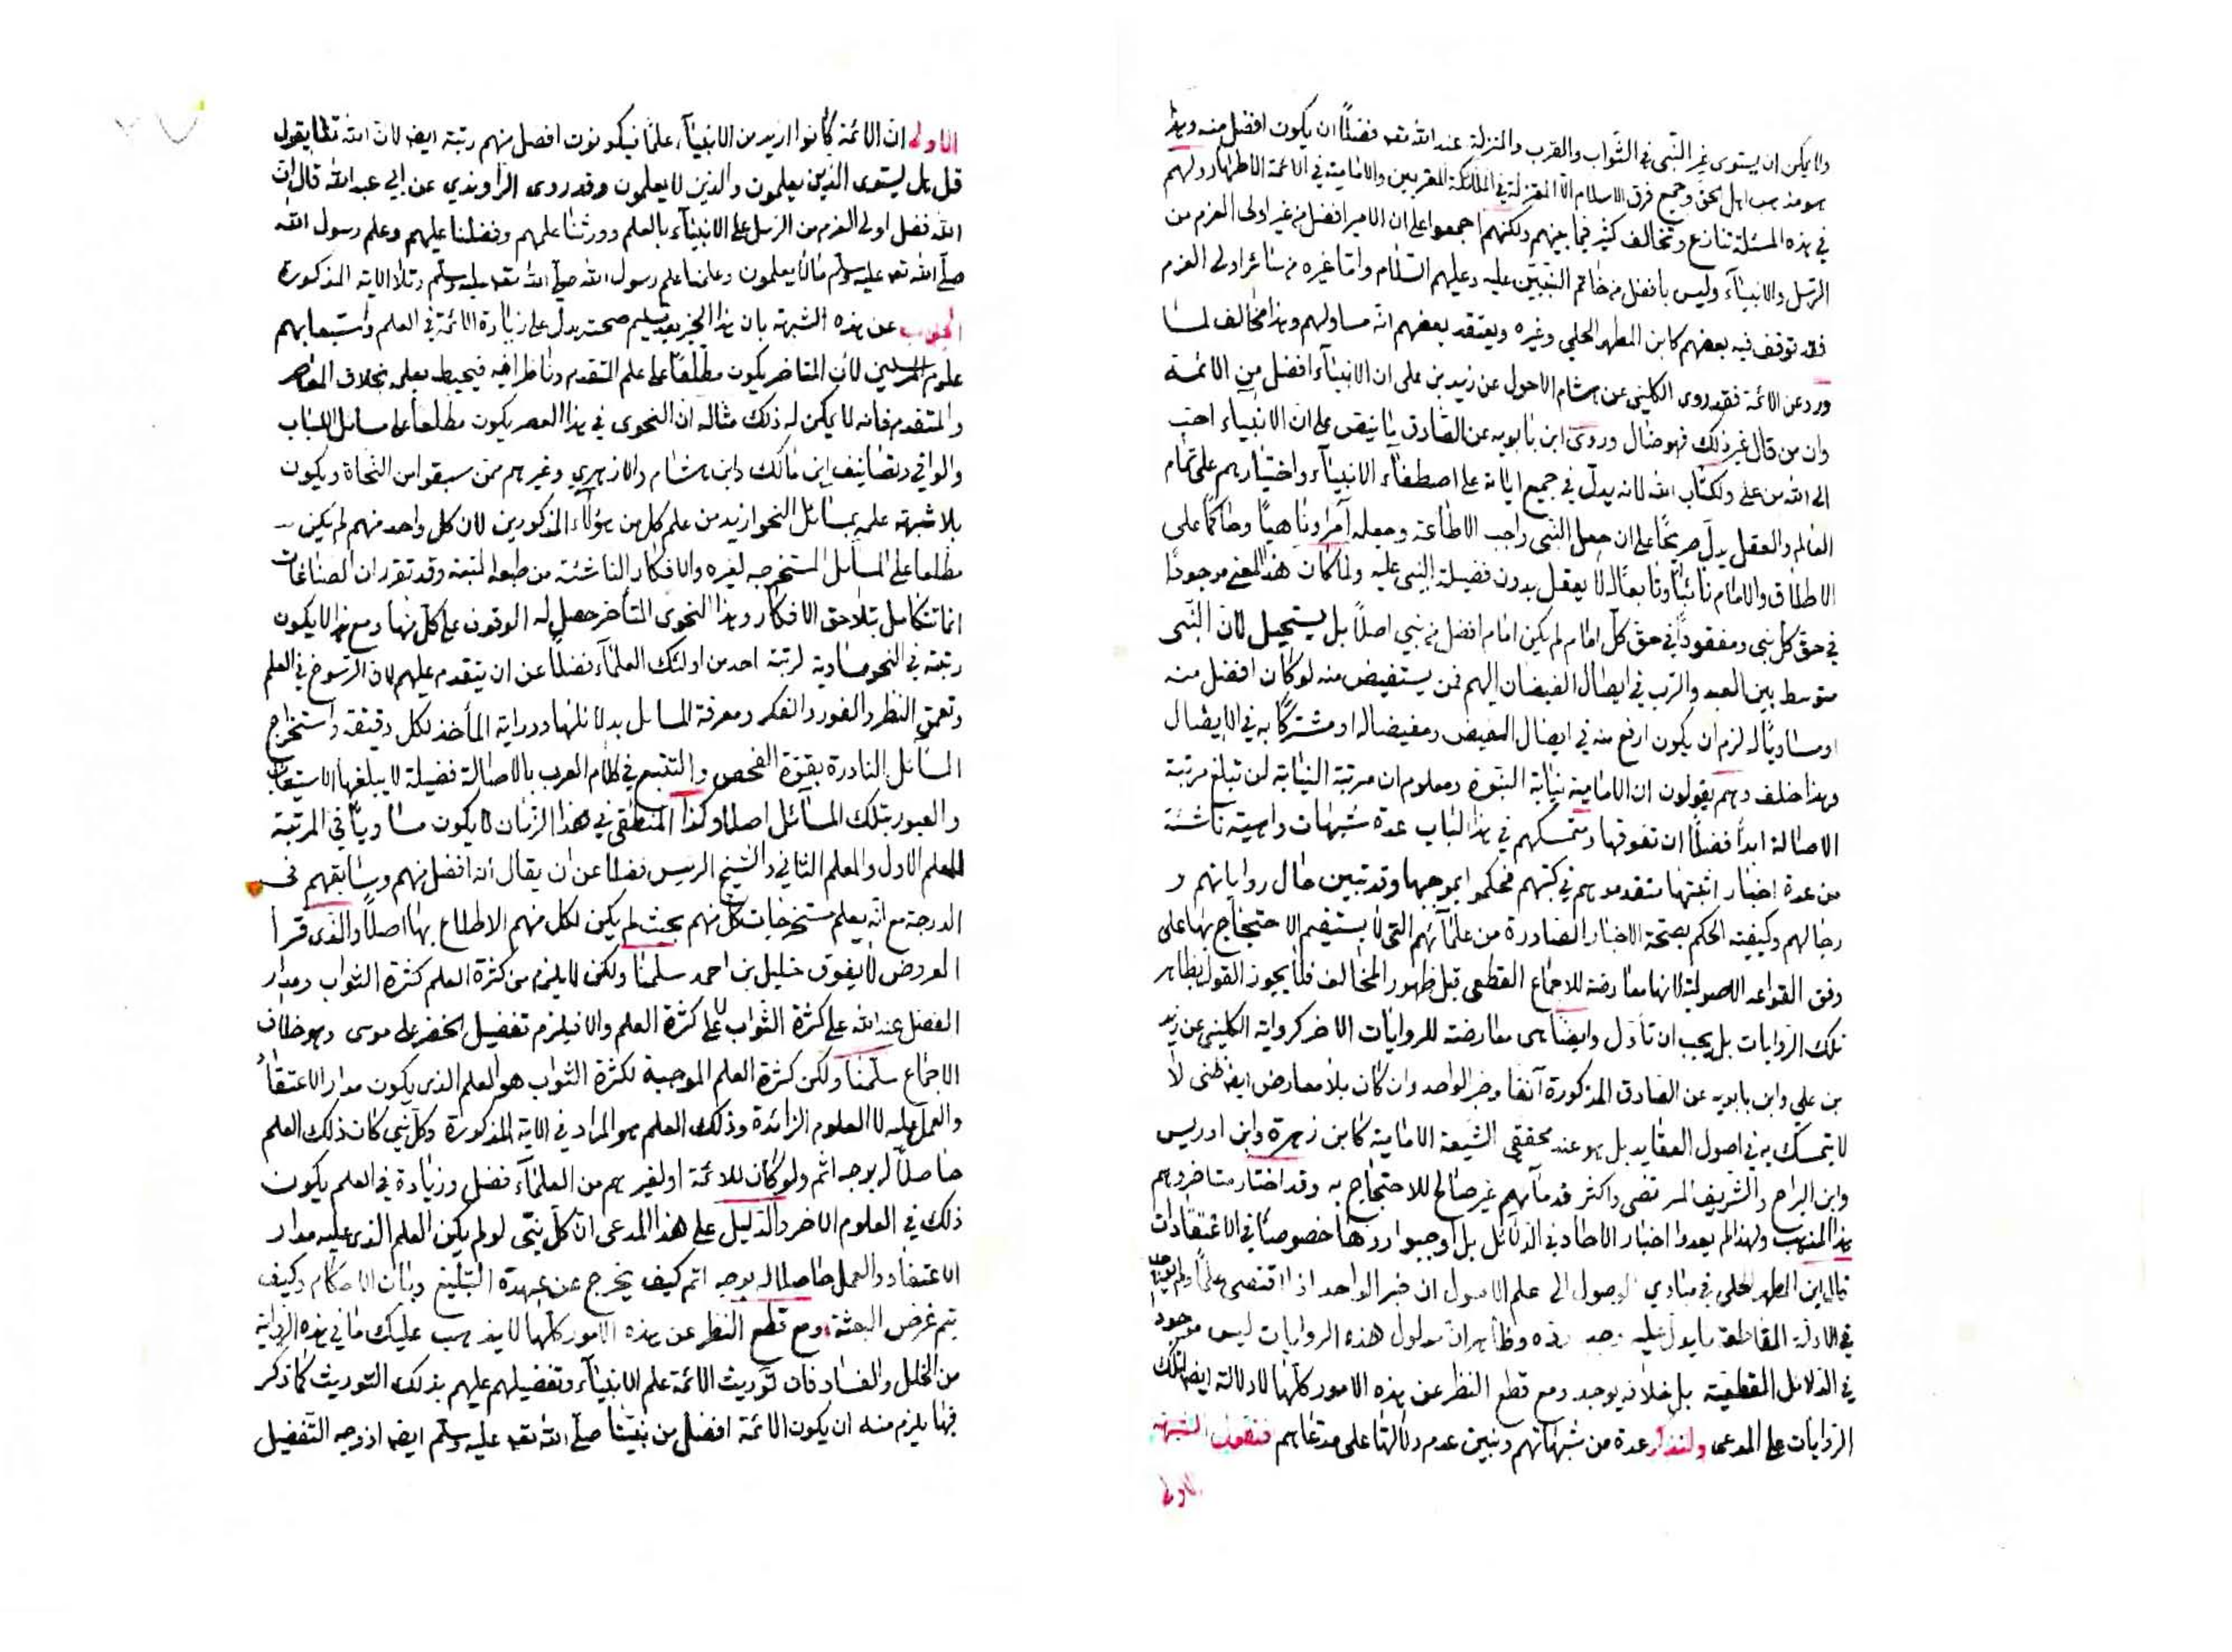 ولا يمكن ان يستوى غير النبى فى الثواب والقرب والمنزلة عند الله تعه فضلاً ان يكون افضل منه وهذا
هو مذهب اهل الحق وجميع فرق الاسلام الا المعتزلة فى الملئكة المقربين والامامية فى الائمة الاطهار ولهم
فى هذه المسئلة تنازع وتخالف كثير فيما بينهم ولكنهم اجمعوا على ان الامير افضل من غير اولى العزم من
الرسل والانبيآء وليس بافضل من خاتم النبيين عليه وعليهم السلام واما غيره من سائر اولى العزم
فقد توقف فيه بعضهم كابن المطهر الحلي وغيره ويعتقد بعضهم انه مساو لهم وهذا مخالف لما
ورد عن الائمة فقد روى الكلينى عن هشام الاحول عن زيد بن على ان الانبيآء افضل من الائمة
وان من قال غير ذلك فهو ضال وروى ابن بابويه عن الصادق ما ينص على ان الانبيآء احب
الى الله من على ولكتاب الله لانه يدل فى جميع اياته على اصطفآء الانبيآء واختيارهم على تمام
العالم والعقل يدل صريحًا على ان جعل النبى واجب الاطاعة وجعله آمرا وناهيًا وحاكمًا على
الاطلاق والامام نائبًا وتابعًا له لا يعقل بدون فضيلة النبى عليه ولما كان هذا المعنى موجودًا
فى حق كل نبى ومفقودًا فى حق كل امام لم يكن امام افضل من نبي اصلاً بل يستحيل لان النبى
متوسط بين العبد والرب فى ايصال الفيضان اليهم فمن يستفيض منه لو كان افضل منه
او مساويًا له لزم ان يكون ارفع منه فى ايصال الفيض ومفيضا له او مشتركًا به فى الايصال
وهذا خلف وهم يقولون ان الامامية نيابة النبوة ومعلوم ان مرتبة النيابة لن تبلغ مرتبة
الاصالة ابدًا فضلًا ان تفوقها ومتمسكهم فى هذا الباب عدة شبهات واهية ناشئة
من عدة اخبار اثبتها متقدموهم فى كتبهم فحكموا بموجبها وقد تبين حال رواياتهم و
رجالهم وكيفية الحكم بصحة الاخبار الصادرة من علمآئهم التى لا يستقيم الاحتجاج بها على
وفق القواعد الاصولية لانها معارضة للاجماع القطعى قبل ظهور المخالف فلا يجوز القول بظاهر
تلك الروايات بل يجب ان تأول وايضا هى معارضة للروايات الاخر كرواية الكلينى عن زيد
بن علي وابن بابويه عن الصادق المذكورة آنفا وخبر الواحد وان كان بلا معارض ايضه ظنى لا
لا يتمسك به فى اصول العقايد بل هو عند محققى الشيعة الامامية كابن زهرة وابن ادريس
وابن البراج والشريف المرتضى واكثر قدمآئهم غير صالح للاحتجاج به وقد اختار متاخروهم
هذا المذهب ولهذا لم يعدوا اخبار الآحاد فى الدلائل بل اوجبوا ردها خصوصًا فى الاعتقادات
قال ابن المطهر الحلى فى مبادي الوصول الى علم الاصول ان خبر الواحد اذا اقتضى علمًا ولم يوجد
فى الادلة القاطعة ما يدل عليه وجب رده وظاهر ان مدلول هذه الروايات ليس موجود
فى الدلائل القطعية بل خلافه يوجد ومع قطع النظر عن هذه الامور كلها لا دلالة ايضه لتلك
الروايات على المدعى ولنذكر عدة من شبهاتهم ونبين عدم دلالتها على مدعاهم فنقول الشبهة
الاولى
الاولى ان الائمة كانوا ازيد من الانبيآء علمًا فيكونون افضل منهم رتبة ايضه لان الله تعالى يقول
قل هل يستوى الذين يعلمون والذين لا يعلمون وقد روى الراوندي عن ابي عبد الله قال ان
الله فضل اولى العزم من الرسل على الانبيآء بالعلم وورثنا علمهم وفضلنا عليهم وعلم رسول الله
صلى الله تعه عليه وسلم ما لا يعلمون وعلمنا علم رسول الله صلى الله تعه عليه وسلم وتلا الآية المذكورة
الجواب عن هذه الشبهة بان هذا الخبر بعد تسليم صحته يدل على زيادة الائمة فى العلم واستيعابهم
علوم المرسلين لأن المتاخر يكون مطلعًا على علم المتقدم وناظرا فيه فيحيط بعلمه بخلاف المعاصر
والمتقدم فانه لا يمكن له ذلك مثاله ان النحوى فى هذا العصر يكون مطلعا على مسائل اللباب
والوافي وتصانيف ابن مالك وابن هشام والازهري وغيرهم ممن سبقوا من النحاة ويكون
بلا شبهة علمه بمسائل النحو ازيد من علم كل من هؤلآء المذكورين لان كل واحد منهم لم يكن
مطلعا على المسائل المستخرجة لغيره والافكار الناشئة من طبعه وقد تقرر ان الصناعات
انما تتكامل بتلاحق الافكار وهذا النحوى المتأخر حصل له الوقوف على كل منها ومع هذا لا يكون
رتبته فى النحو مساوية لرتبة احد من اولئك العلمآء فضلًا عن ان يتقدم عليهم لان الرسوخ فى العلم
وتعمق النظر والغور والفكر ومعرفة المسائل بدلائلها ودراية المأخذ لكل دقيقة واستخراج
المسائل النادرة بقوة الفحص والتتبع فى كلام العرب بالاصالة فضيلة لا يبلغها الاستيعاب
والعبور بتلك المسآئل اصلا وكذا المنطقى فى هذا الزمان لا يكون مساويًا فى المرتبة
للمعلم الاول والمعلم الثاني والشيخ الرئيس فضلا عن ان يقال انه افضل منهم وسابقهم فى
الدرجة مع انه يعلم مستخرجات كل منهم بحيث لم يكن لكل منهم الاطلاع بها اصلًا والذى قرا
العروض لا يفوق خليل بن احمد سلمنا ولكن لا يلزم من كثرة العلم كثرة الثواب ومدار
الفضل عند الله على كثرة الثواب لا على كثرة العلم والا فيلزم تفضيل الخضر على موسى وهو خلاف
الاجماع سلمنا ولكن كثرة العلم الموجبة لكثرة الثواب هو العلم الذى يكون مدار الاعتقاد
والعمل عليه لا العلوم الزائدة وذلك العلم هو المراد فى الاية المذكورة وكل نبى كان ذلك العلم
حاصلًا له بوجه اتم ولو كان للائمة او لغيرهم من العلمآء فضل وزيادة فى العلم يكون
ذلك فى العلوم الاخر والدليل على هذا المدعى ان كل نبى لو لم يكن العلم الذى عليه مدار
الاعتقاد والعمل حاصلا له بوجه اتم كيف يخرج عن عهدة التبليغ وبيان الاحكام وكيف
يتم غرض البعثة ومع قطع النظر عن هذه الامور كلها لا يذهب عليك ما فى هذه الرواية
من الخلل والفساد فان توريث الائمة علم الانبيآء وتفضيلهم عليهم بذلك التوريث كما ذكر
فيها يلزم منه ان يكون الائمة افضل من نبينا صلى الله تعه عليه وسلم ايضه اذ وجه التفضيل